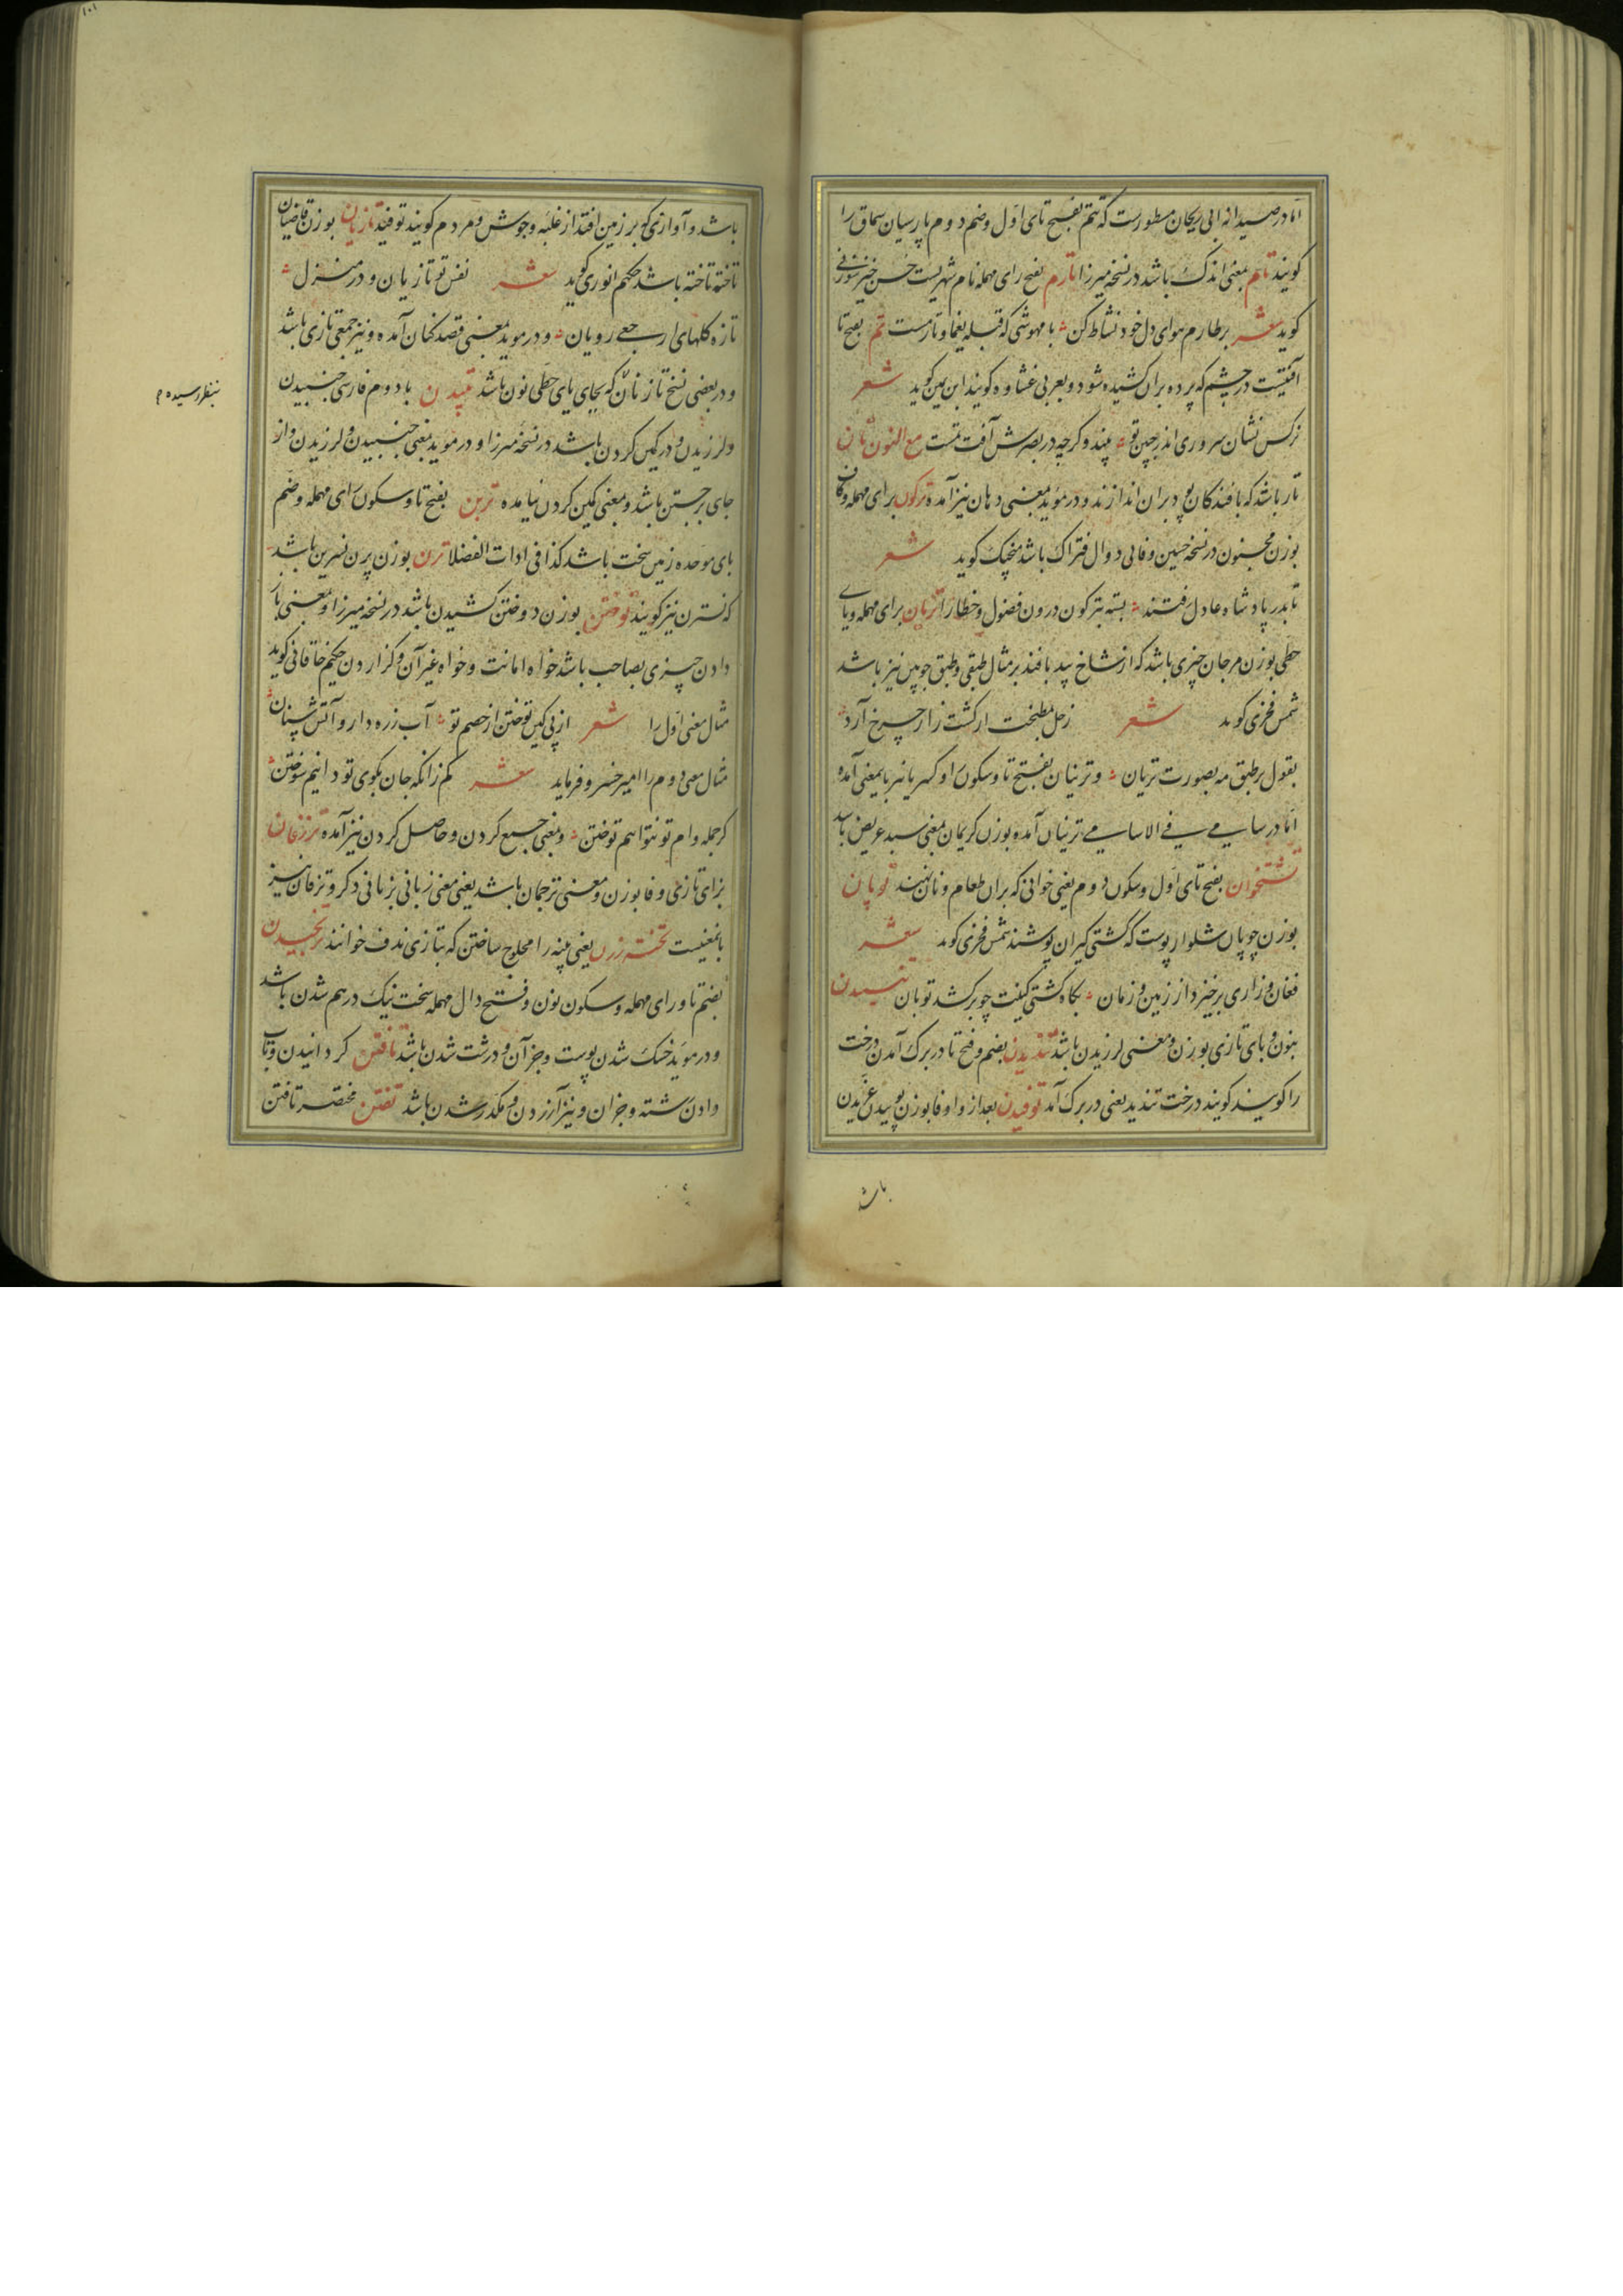 اما در صیدانه ابی ریحان مسطورست که تتم بفتح تای اول و ضم دوم پارسیان سماق را
کویند تام بمعنی اندک باشد در نسخه میرزا تارم بفتح رای مهمله نام شهریست حسن خیر
کوید شعر بر طارم هوای دل خود نشاط کن با مهوشی که قبله یغما و تارمست تم بفتح تا
آفتیست در چشم که پرده بران کشیده شود و بعربی غشاوه کویند ابن یمین کوید شعر
نرکس نشان سروری اندر جبین تو بیند و کرچه در بصرش آفت تمست مع النون تان
تار باشد که بافندکان پود بران اندازند و در موید بمعنی دهان نیز آمده ترکون برای مهمله و کاف
بوزن مجنون در نسخه حسین وفائی دوال فتراک باشد منجیک کوید شعر
تا بدر پادشاه عادل رفتند بسته بترکون درون فضول و خطا را تریان برای مهمله و یای
حطی بوزن مرجان چیزی باشد که از شاخ بید بافند بر مثال طبقی و طبق چوبین نیز باشد
شمس فخری کوید شعر زحل مطبخت از کشت زار چرخ آرد
بقول بر طبق مه بصورت تریان و ترنیان بفتح تا و سکون را و کسر یا نیز باینمعنی آمده
اما در سامی فی الاسامی ترنیان آمده بوزن کریمان بمعنی سبد عریض باشد
تشتخوان بفتح تای اول و سکون دوم یعنی خوانی که بران طعام و نان نهند توپان
بوزن چوپان شلوار پوست که کشتی کیران پوشند شمس فخری کوید شعر
فغان و زاری برخیزد از زمین و زمان بکاه کشتی کینت چو برکشد توبان تنبیدن
بنون و بای تازی بوزن و معنی لرزیدن باشد تندیدن بضم و فتح تا در برک آمدن درخت
را کویند کویند درخت تندید یعنی در برک آمد توفیدن بعد از واو فا بوزن پوییدن غریدن
باشد
باشد و آوازی که بر زمین افتد از غلبه و جوش و مردم کویند توفید تازیان بوزن قاضیان
تاخته تاخته باشد حکیم انوری کوید شعر نفس تو تازیان و در منزل
تازه کلهای ارجعی رویان و در موید بمعنی قصد کنان آمده و نیز جمع تازی باشد
و در بعضی نسخ تازنان که بجای یای حطی نون باشد تپیدن با دوم فارسی جنبیدن
و لرزیدن و در کمین کردن باشد در نسخه میرزا و در موید بمعنی جنبیدن و لرزیدن و از
جای برجستن باشد و بمعنی کمین کردن نیامده تربن بفتح تا و سکون رای مهمله و ضم
بای موحده زمین سخت باشد کذا فی ادات الفضلا ترن بوزن پرن نسرین باشد
که نسترن نیز کویند توختن بوزن دوختن کشیدن باشد در نسخه میرزا و بمعنی باز
دادن چیزی بصاحب باشد خواه امانت و خواه غیر آن و کزاردن حکیم خاقانی کوید
مثال معنی اول را شعر از پی کین توختن از خصم تو آب زره دار و آتش سنان
مثال معنی دوم را امیر خسرو فرماید شعر کم زانکه جان بکوی تو دانیم سوختن
کر جمله وام تو نتوانیم توختن و بمعنی جمع کردن و حاصل کردن نیز آمده ترزفان
بزای تازی و فا بوزن و معنی ترجمان باشد یعنی معنی زبانی بزبانی دکر و تزفان نیز
بایمعنیست تخته زدن یعنی پنبه را محلوج ساختن که بتازی ندف خوانند ترنجیدن
بضم تا و رای مهمله و سکون نون و فتح دال مهمله سخت نیک درهم شدن باشد
و در موید خشک شدن پوست و جز آن و درشت شدن باشد تافتن کردانیدن و تاب
دادن رشته و جز آن و نیز آزردن و مکدر شدن باشد تفتن مختصر تافتن
بنظر رسیده م
۱۰۱